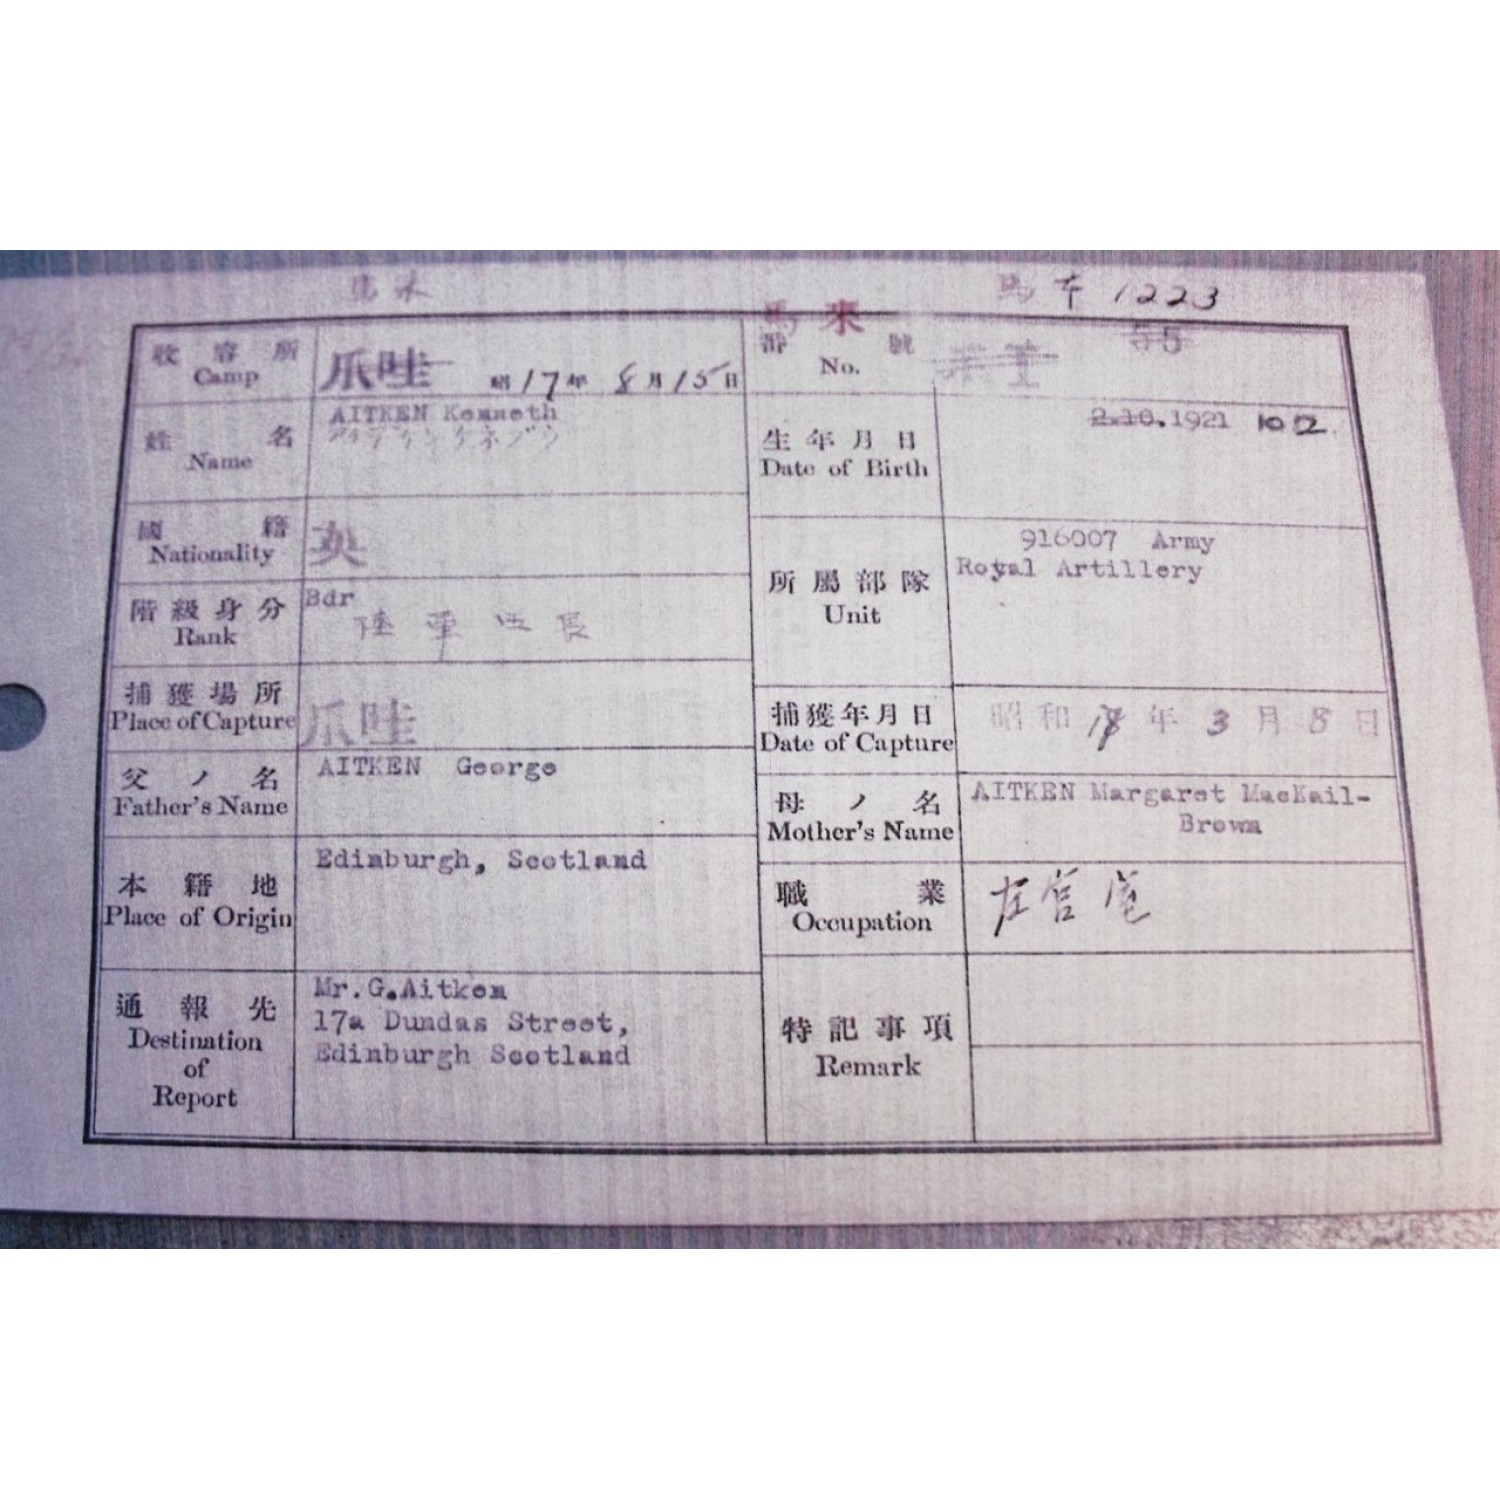 馬来
馬本 1223
馬來
收容所
Camp
爪哇 昭17年 8月15日
番號
No.
55
姓名
Name
AITKEN Kenneth
生年月日
Date of Birth
2.10.1921 10 2
國籍
Nationality
英
所屬部隊
Unit
916007 Army
Royal Artillery
階級身分
Rank
Bdr
陸軍伍長
捕獲場所
Place of Capture
爪哇
捕獲年月日
Date of Capture
昭和 年 3月8日
父ノ名
Father's Name
AITKEN George
母ノ名
Mother's Name
AITKEN Margaret MacKail-
Brown
本籍地
Place of Origin
Edinburgh, Scotland
職業
Occupation
左官
通報先
Destination
of
Report
Mr.G.Aitken
17a Dundas Street,
Edinburgh Scotland
特記事項
Remark